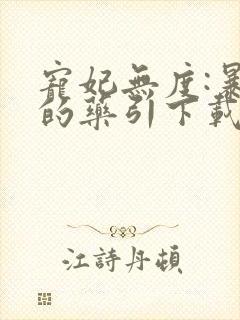 寵妃無度:暴
的藥引下載
江詩丹頓